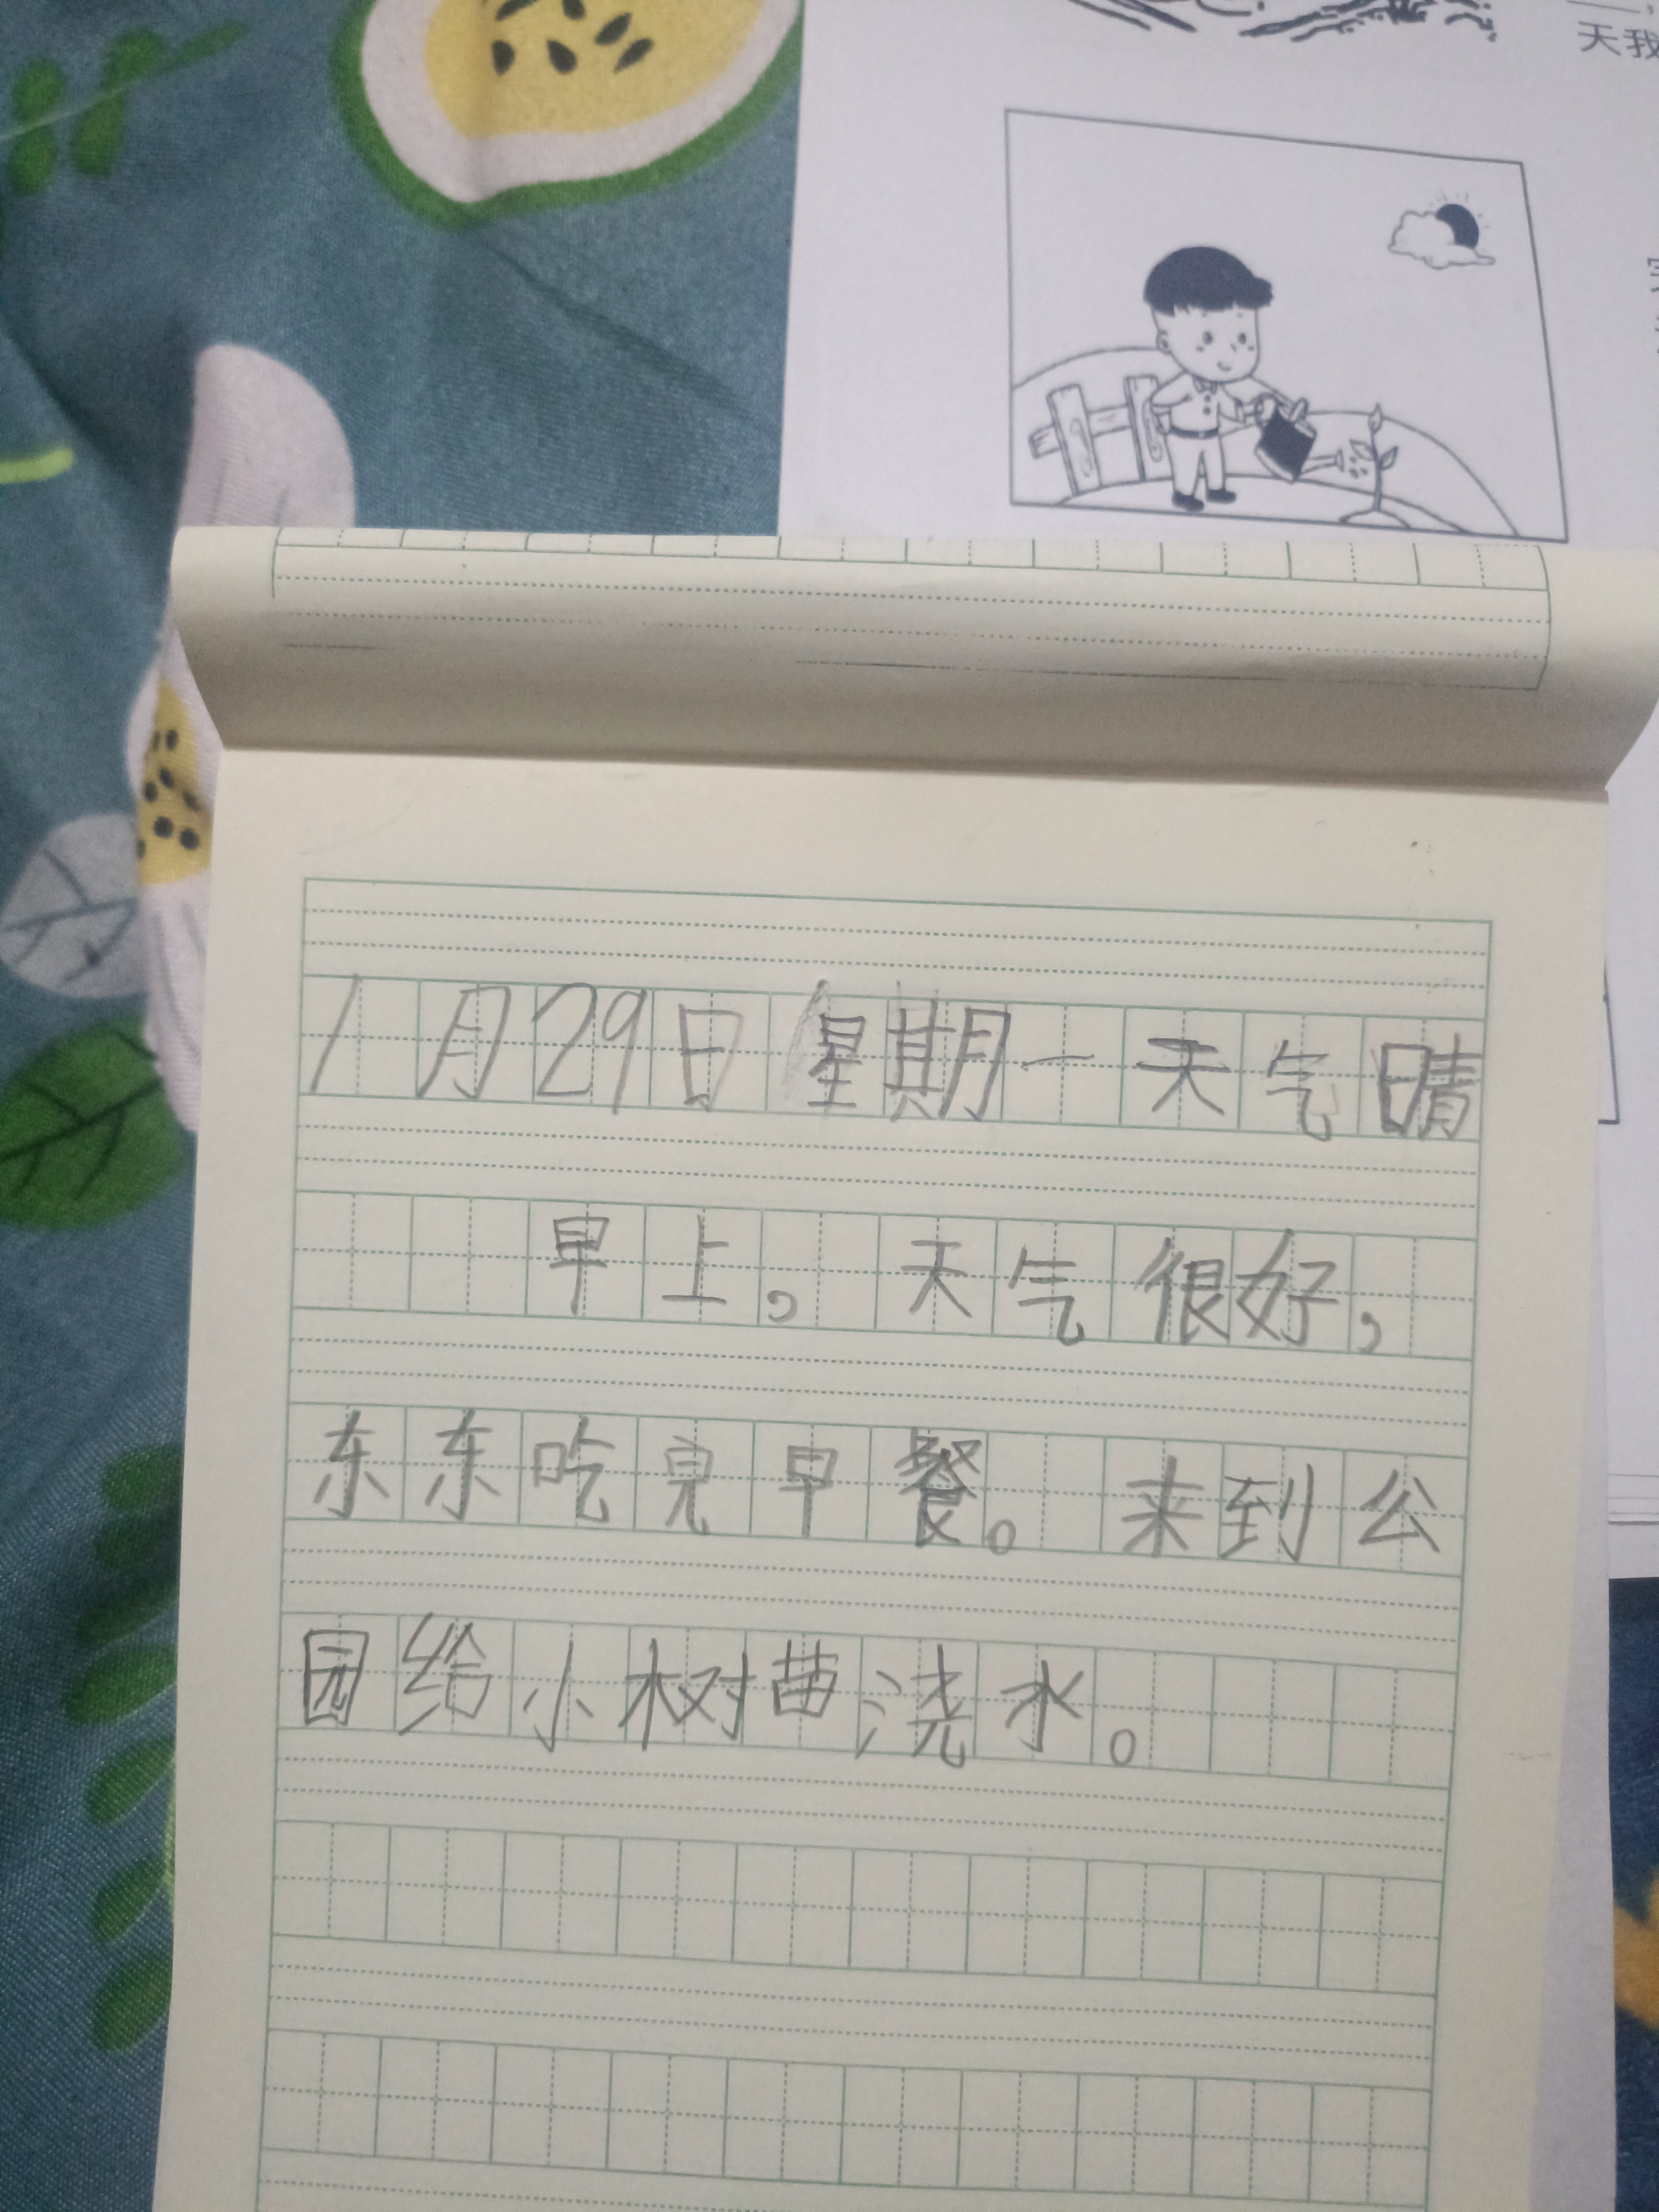 天我
1月29日星期一天气晴
早上，天气很好，
东东吃完早餐。来到公
园给小树苗浇水。